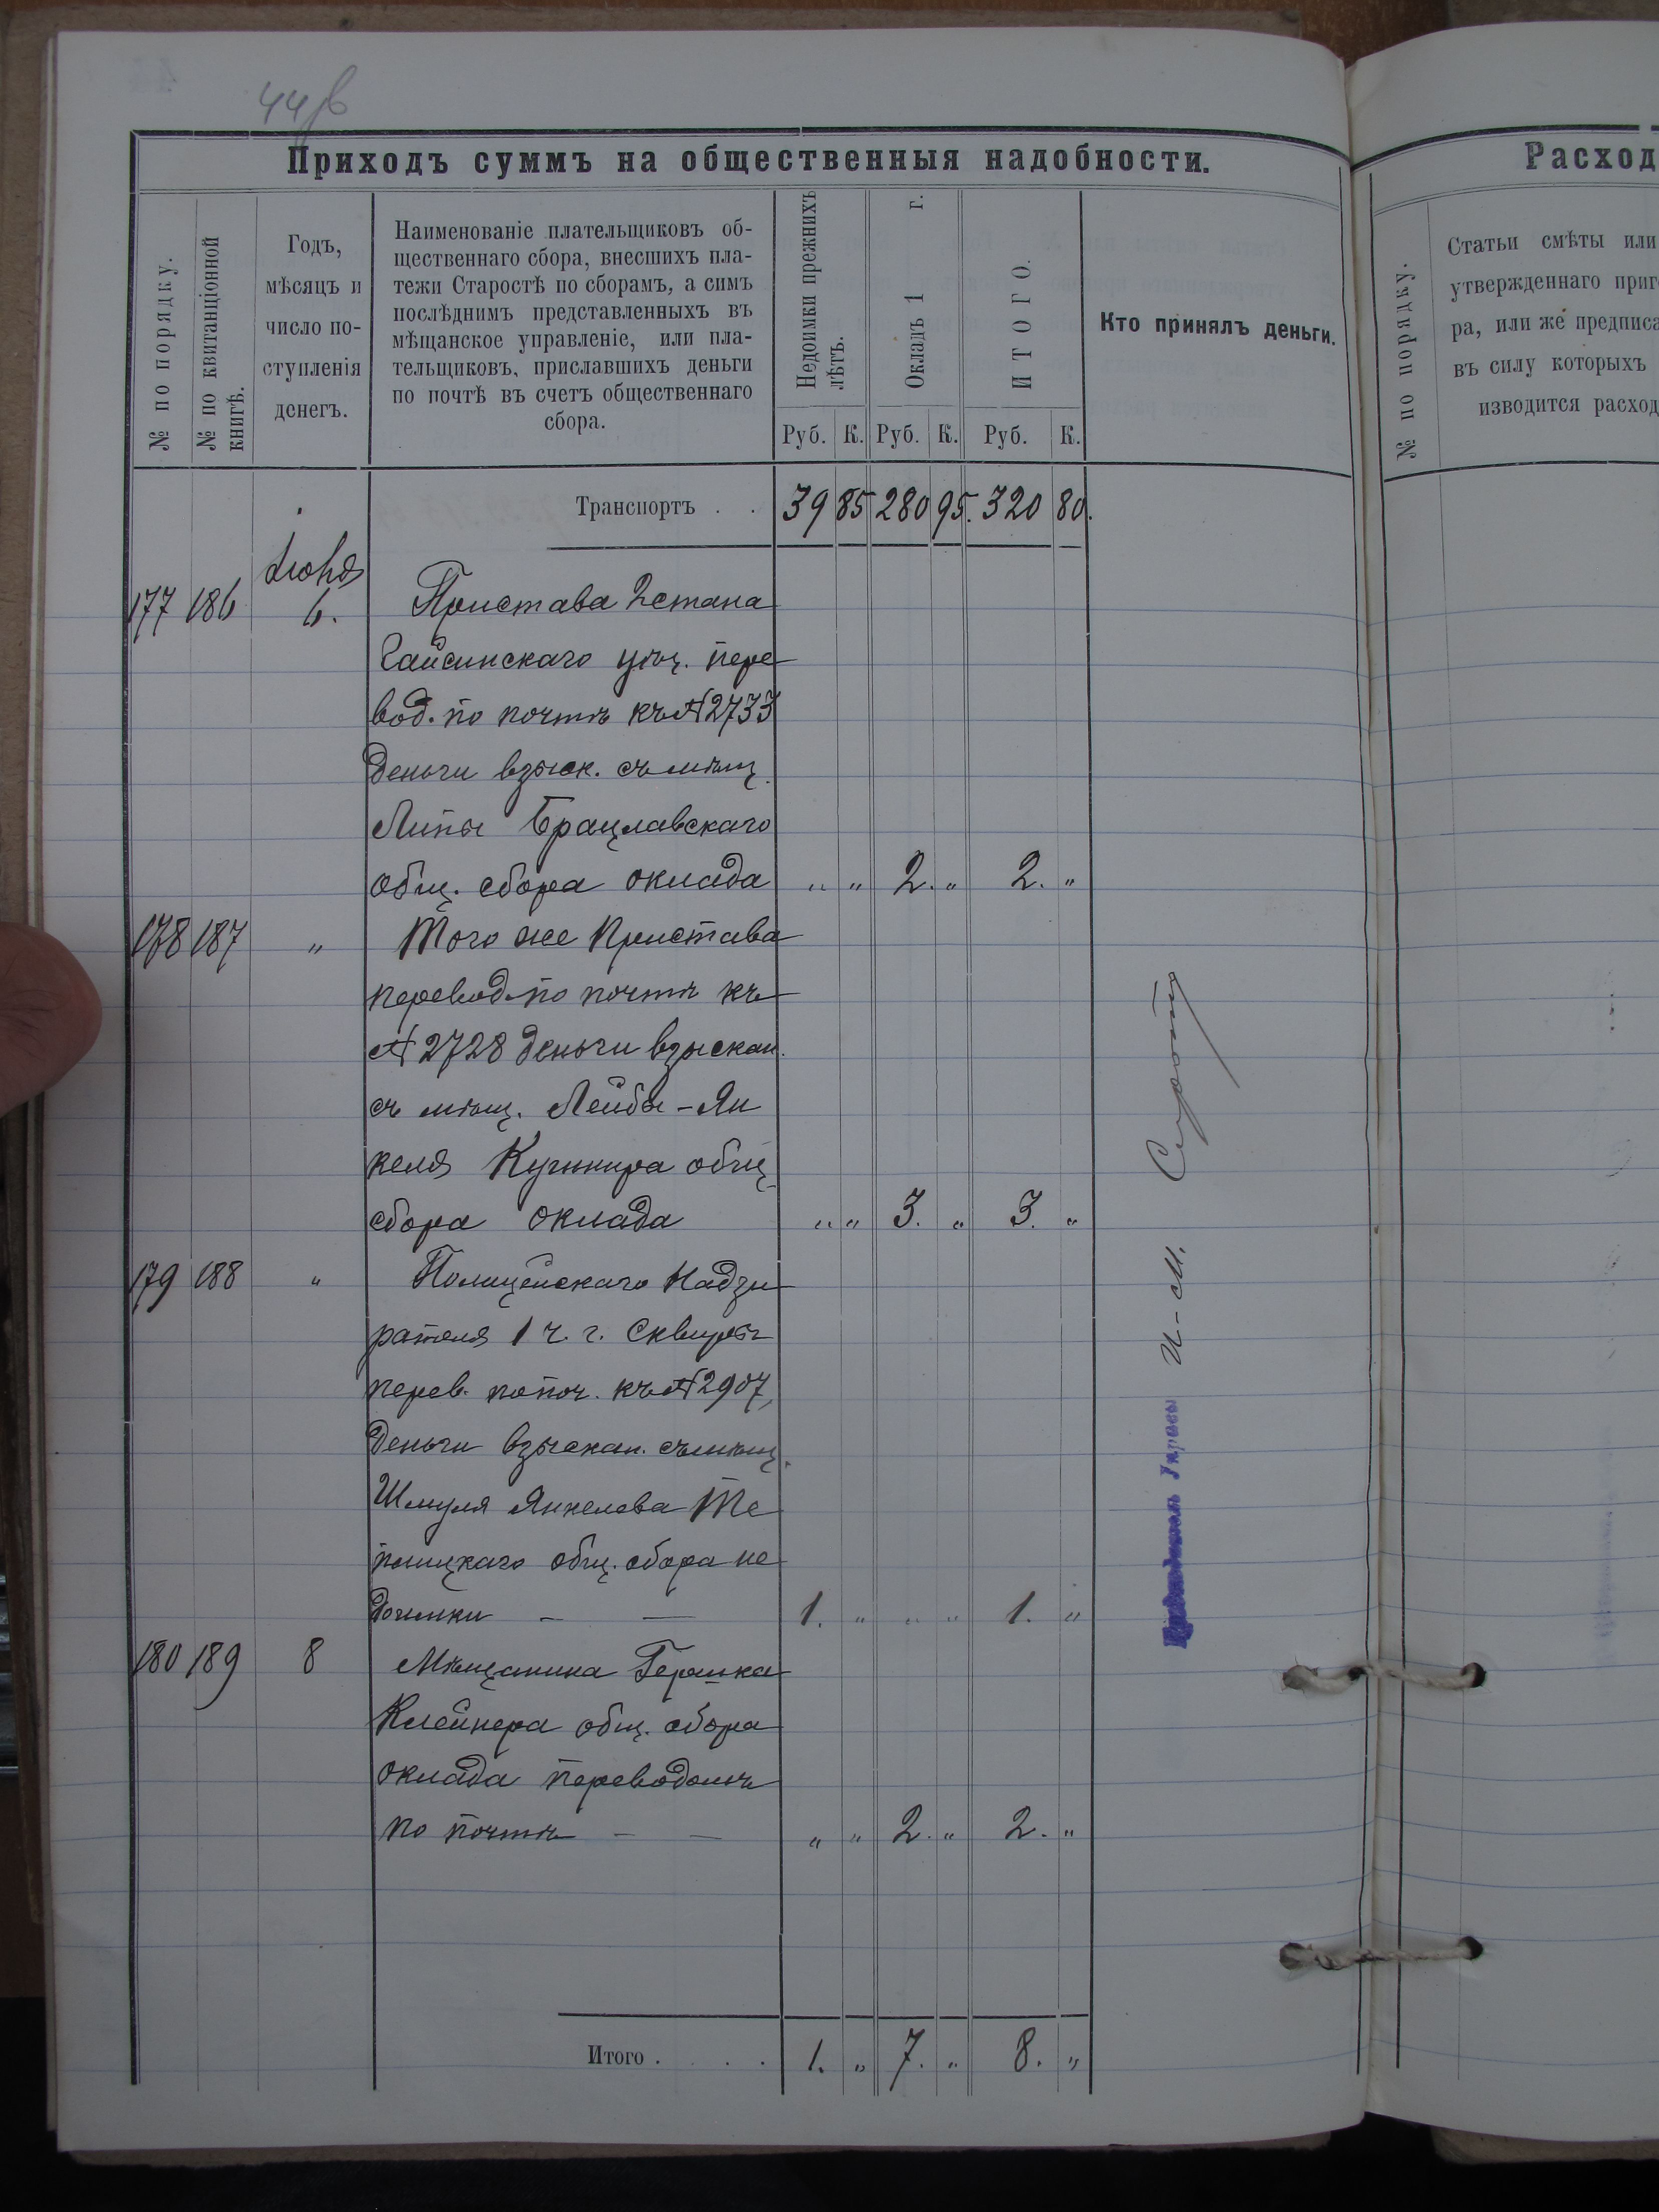 44 об
Приходъ суммъ на общественныя надобности.
№ по порядку.
№ по квитанціонной
книгѣ.
Годъ,
мѣсяцъ и
число по-
ступленія
денегъ.
Наименованіе плательщиковъ об-
щественнаго сбора, внесшихъ пла-
тежи Старостѣ по сборамъ, а симъ
послѣднимъ представленныхъ въ
мѣщанское управленіе, или пла-
тельщиковъ, приславшихъ деньги
по почтѣ въ счетъ общественнаго
сбора.
Недоимки прежнихъ
лѣтъ.
Окладъ 1 г.
ИТОГО.
Кто принялъ деньги.
Руб. К. Руб. К. Руб. К.
Транспортъ . . 39 85 280 95. 320 80.
Іюня
177 186 6. Пристава 2 стана
Гайсинскаго уѣз. пере
вод. по почтѣ къ № 2733
деньги взыск. съ мѣщ.
Липы Брацлавскаго
общ. сбора оклада „ „ 2. „ 2. „
178 187 „ Того же Пристава
перевод. по почтѣ къ
№ 2728 деньги взыскан.
съ мѣщ. Лейбы-Ян
келя Кушнира общ.
сбора оклада „ „ 3. „ 3. „
179 188 „ Полицейскаго Надзи
рателя 1 ч. г. Сквиры
перев. по поч. къ № 2907,
деньги взыскан. съ мѣщ.
Шмуля Янкелева Те
плицкаго общ. сбора не
доимки — — 1. „ „ „ 1. „
180 189 8 Мѣщанина Гершка
Клейнера общ. сбора
оклада переводомъ
по почтѣ — — „ „ 2. „ 2. „
Итого . . . . 1. „ 7. „ 8. „
Управы И-М.
Расход
№ по порядку.
Статьи смѣты или
утвержденнаго приг
ра, или же предписа
въ силу которыхъ
изводится расход